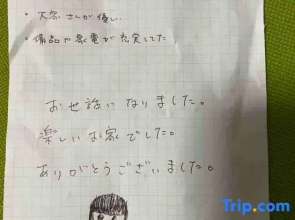 ・大家さんが優しい
・備品や家電が充実してた
お世話になりました。
楽しいお家でした。
ありがとうございました。
Trip.com